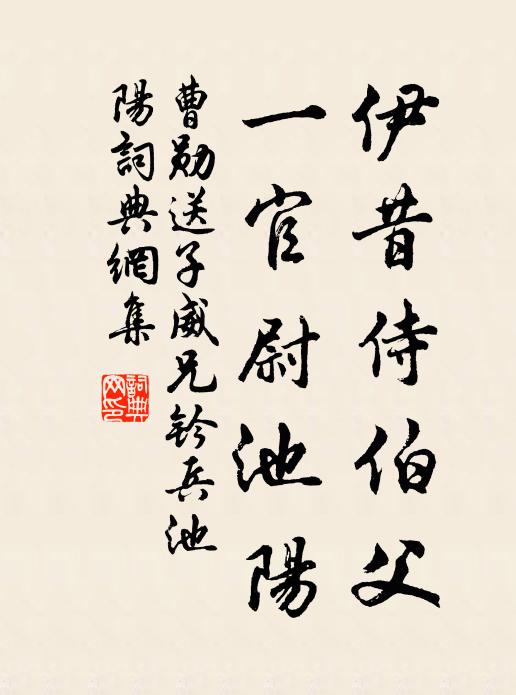 伊昔侍伯父
一官尉池陽
曹勛送子威兄鈐兵池
陽詞典網集
詞典網印